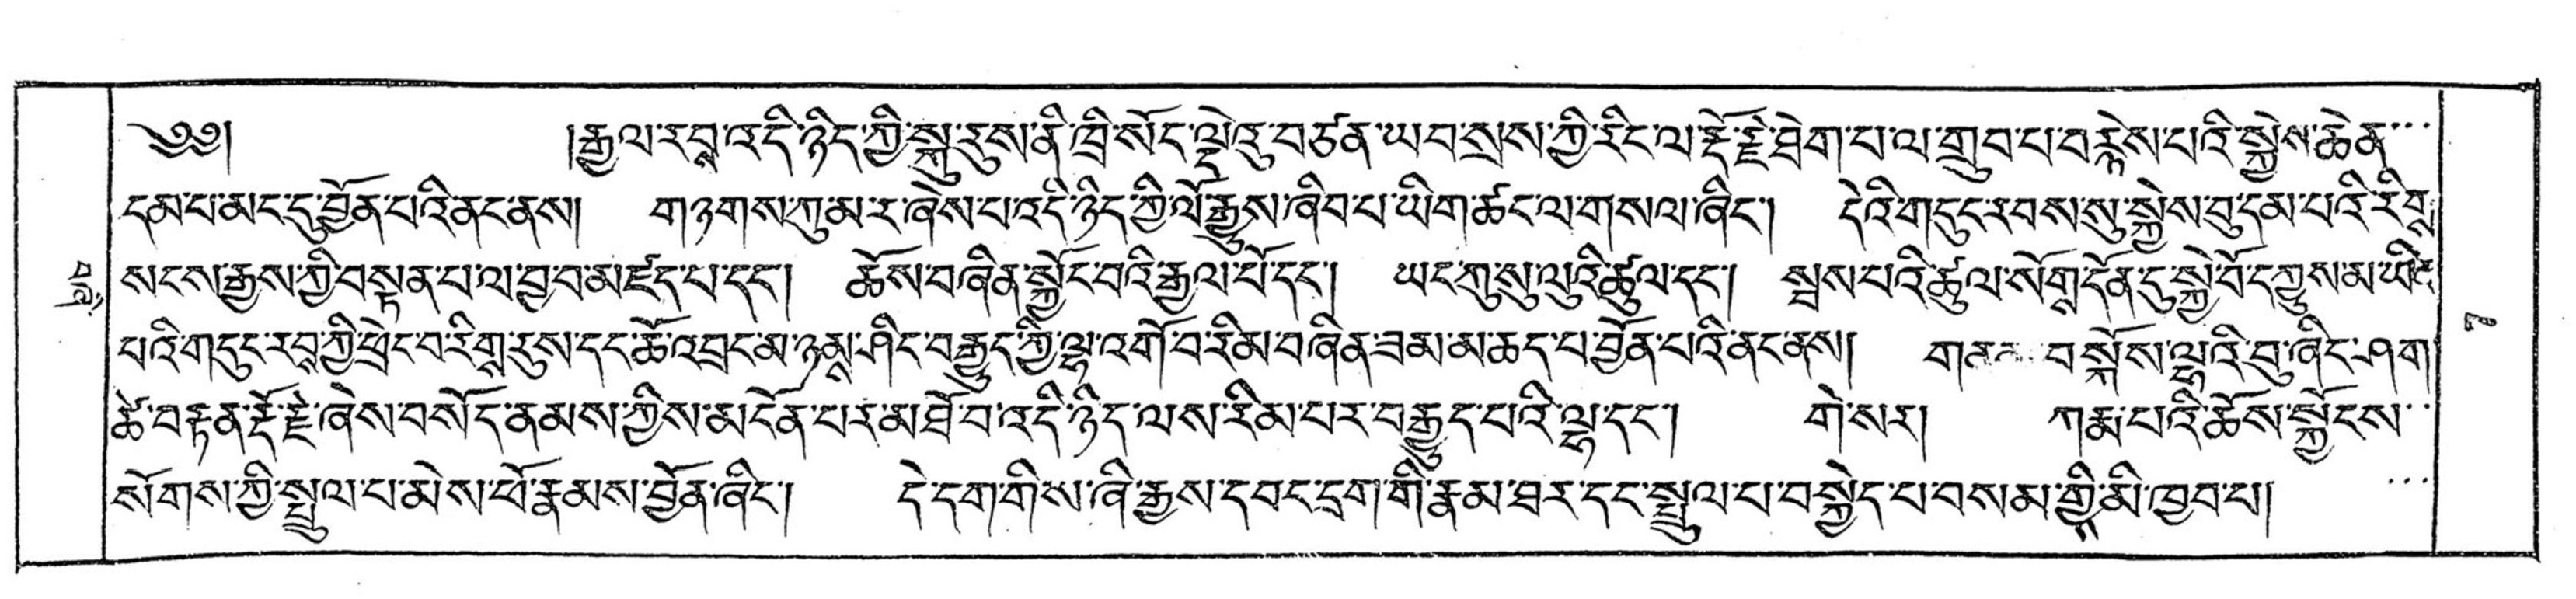 ༄༅། །རྒྱལ་རབྶ་འདི་ཉིད་ཀྱི་སྐུ་རུས་ནི་ཁྲི་སོང་ལྡེའུ་བཙན་ཡབ་སྲས་ཀྱི་རིང་ལ་རྡོ་རྗེ་ཐེག་པ་ལ་གྲུབ་པ་བརྙེས་པའི་སྐྱེས་ཆེན་
དམ་པ་མང་དུ་བྱོན་པའི་ནང་ནས། གཉགས་ཀུ་མ་ར་ཞེས་པ་འདི་ཉིད་ཀྱི་ལོ་རྒྱུས་ཞིབ་པ་ཡིག་ཚང་ལ་གསལ་ཞིང་། དེའི་གདུང་རབས་སུ་སྐྱེས་བུ་དམ་པའི་རིགྶ་
སངས་རྒྱས་ཀྱི་བསྟན་པ་ལ་བྱ་བ་མཛད་པ་དང་། ཆོས་བཞིན་སྐྱོང་བའི་རྒྱལ་པོ་དང་། ཡང་ཀུ་སུ་ལུའི་ཚུལ་དང་། སྦས་པའི་ཚུལ་སོགྶ་དོན་དུ་སྐྱེ་བོ་དཀྱུས་མ་ཡིན་
པའི་གདུང་རབྶ་ཀྱི་ཕྲེང་བ་རིགྶ་རུས་དང་ཆོ་འབྲང་མ་ཉམྶ་ཤིང་བརྒྱུད་ཀྱི་ལྷ་འགོ་བ་རིམ་བཞིན་ཟམ་མ་ཆད་པ་བྱོན་པའི་ནང་ནས། བསྐོས་ལྷའི་བུ་ཞིང་ཤག་
ཚེ་བརྟན་རྡོ་རྗེ་ཞེས་བསོད་ནམས་ཀྱིས་མངོན་པར་མཐོ་བ་འདི་ཉིད་ལས་རིམ་པར་བརྒྱུད་པའི་ལྷ་དང་། གེ་སར། ཀརྨ་པའི་ཆོས་སྐྱོངས་
སོགས་ཀྱི་སྤྲུལ་པ་མེས་ཕོ་རྣམས་བྱོན་ཞིང་། དེ་དག་གིས་ཞི་རྒྱས་དབང་དྲག་གི་རྣམ་ཐར་དང་སྤྲུལ་པ་བསྐྱེད་པ་བསམ་གྱིྶ་མི་ཁྱབ་པ།